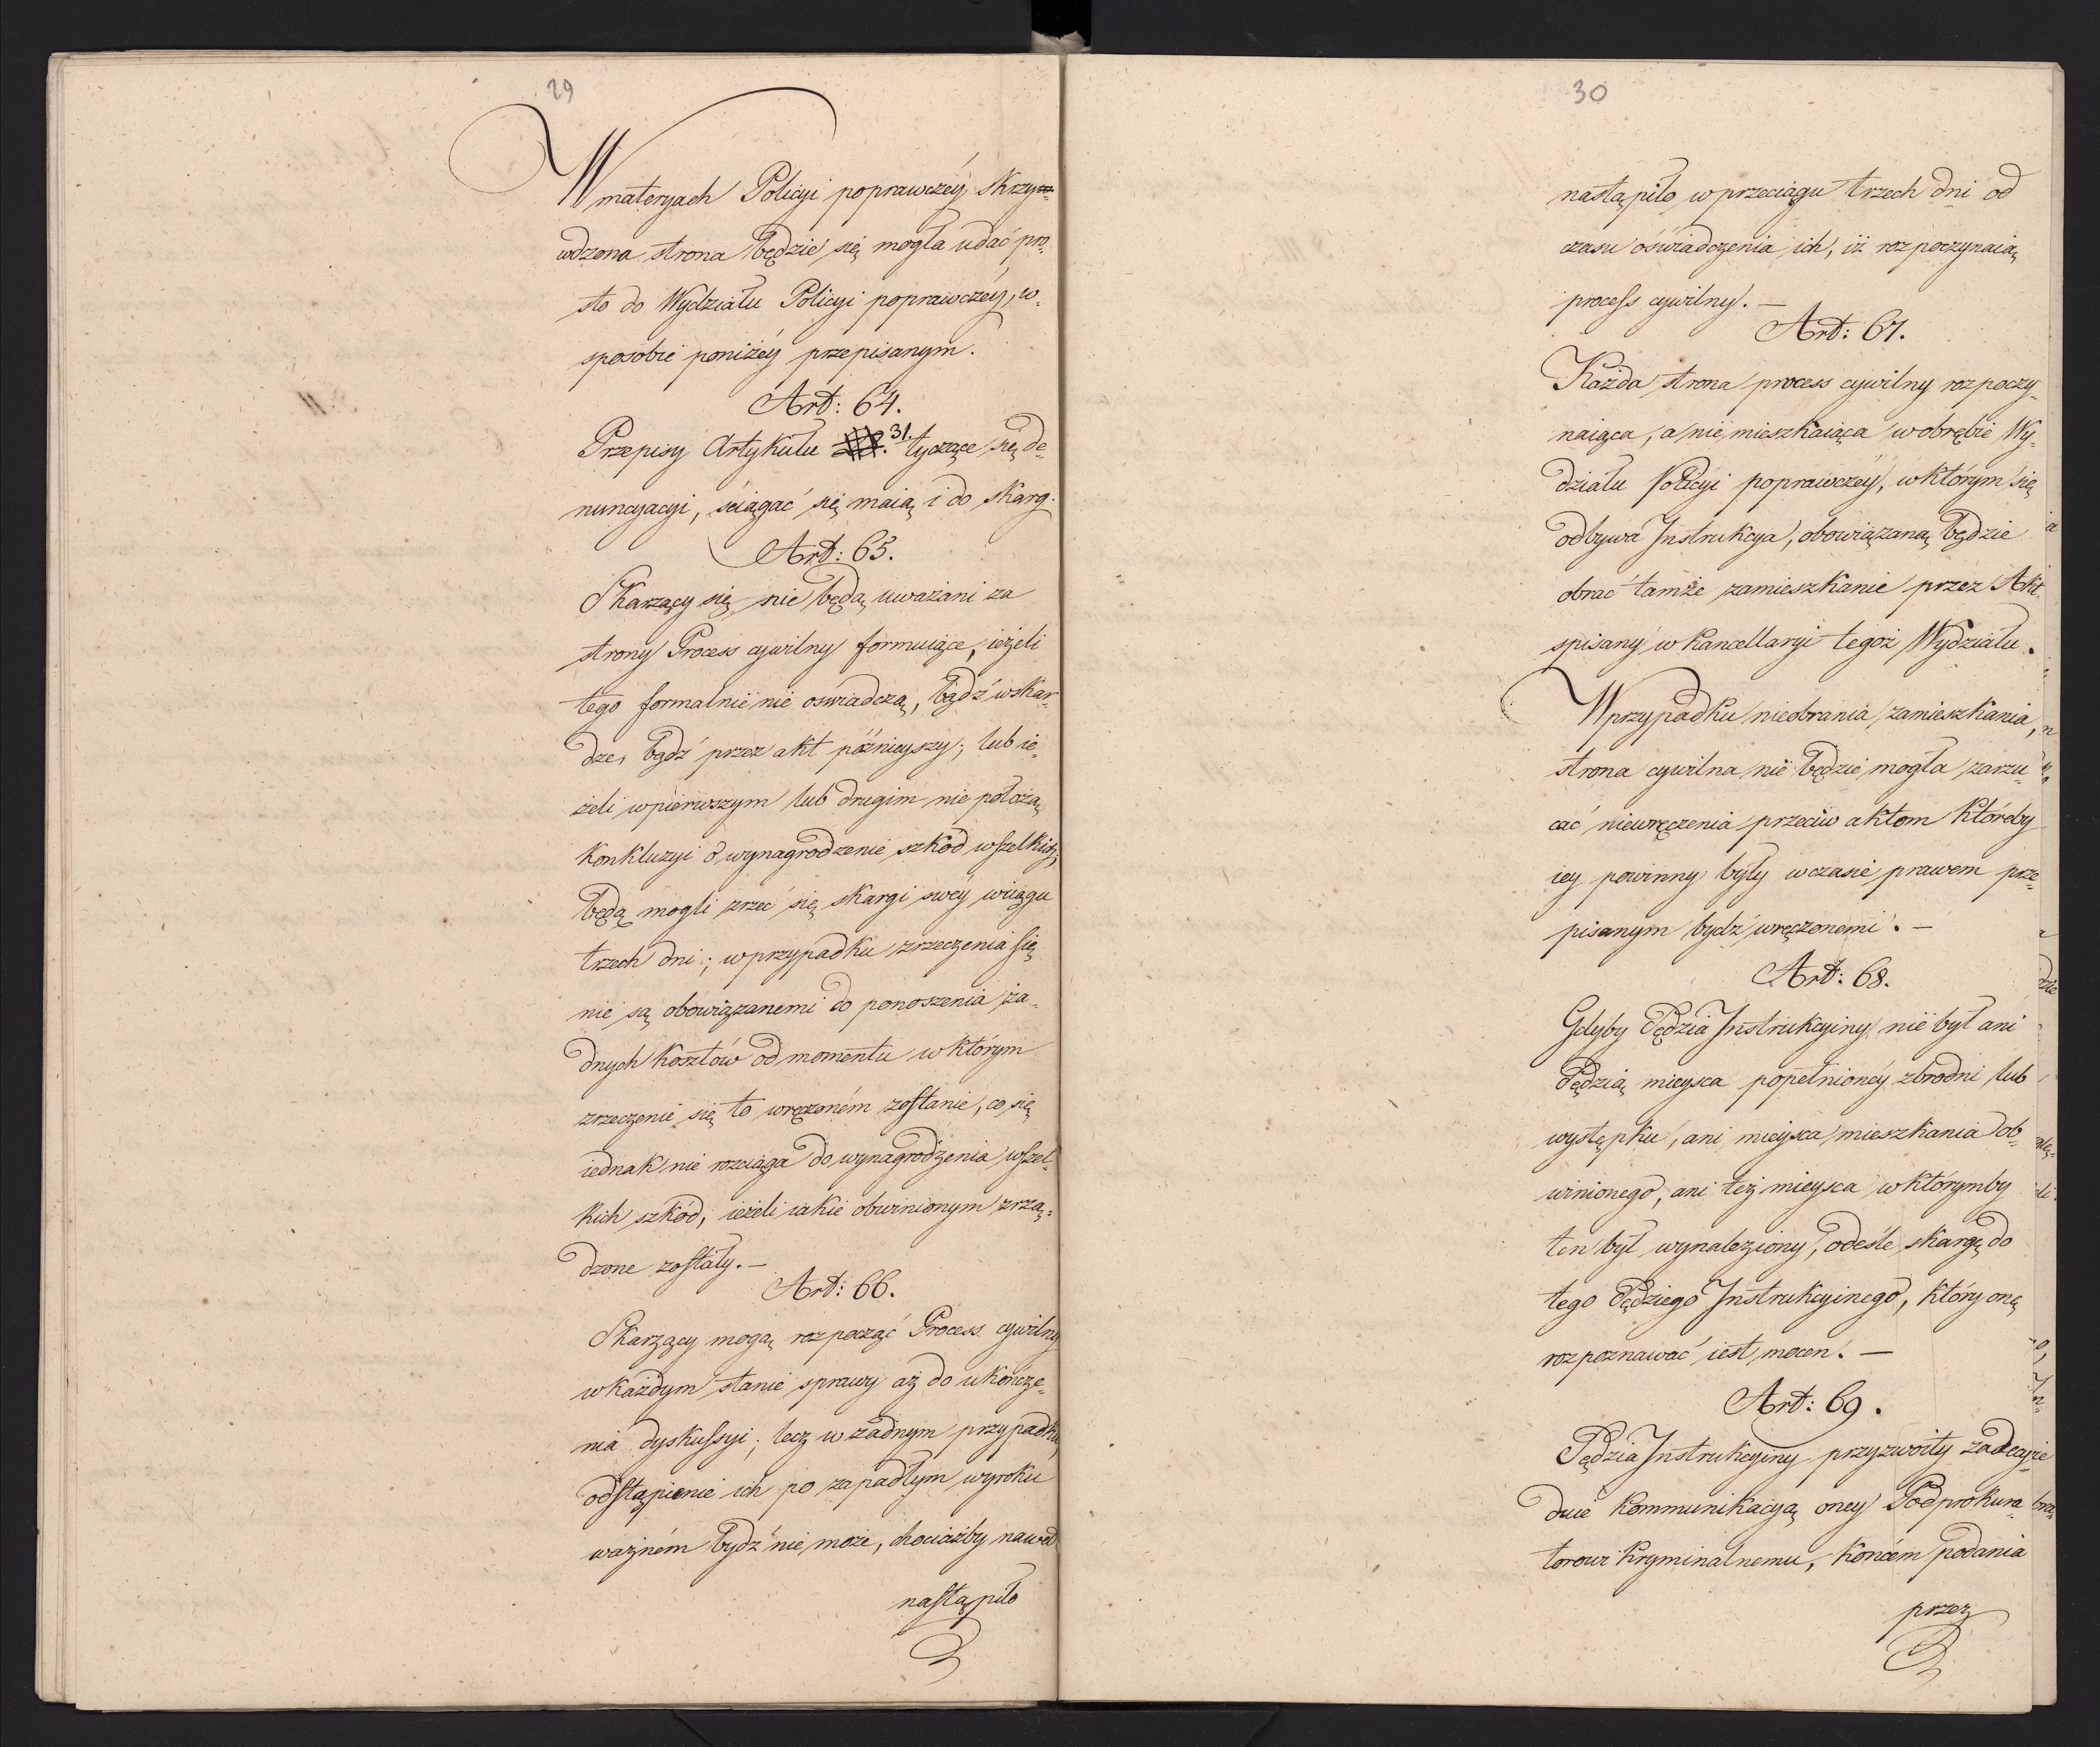 29
W materyach Policyi poprawczéy skrzy=
wdzona strona będzie się mogła udać pro=
sto do Wydziału Policyi poprawczéy, w=
sposobie poniżéy przepisanym.
Art: 64.
Przepisy Artykułu 31. tyczące się de=
nuncyacyi, ściągać się maią i do skarg.
Art: 65.
Skarzący się nie będą uważani za
strony Process cywilny formuiące, ieżeli
tego formalnie nie oświadczą, bądź w skar=
dze, bądź przez akt późnieyszy; lub ie=
żeli w pierwszym lub drugim nie położą
Konkluzyi o wynagrodzenie szkód wszelkich,
będą mogli zrzec się skargi swéy w ciągu
trzech dni; w przypadku zrzeczenia się
nie są obowiązanemi do ponoszenia ża=
dnych kosztów od momentu w którym
zrzeczenie się to wręczoném zostanie, co się
iednak nie rozciąga do wynagrodzenia wszel=
kich szkód, ieżeli iakie obwinionym zrzą=
dzone zostały. —
Art: 66.
Skarzący mogą rozpocząć Process cywilny
w każdym stanie sprawy aż do ukończe=
nia dyskussyi; lecz w żadnym przypadku
odstąpienie ich po zapadłym wyroku
ważném bydź nie może, chociażby nawet
nastąpiło
30
nastąpiło w przeciągu trzech dni od
czasu oświadczenia ich, iż rozpoczynaią
process cywilny. —
Art: 67.
Każda strona process cywilny rozpoczy=
naiąca, a nie mieszkaiąca w obrębie Wy=
działu Policyi poprawczéy, w którym się
odbywa Instrukcya, obowiązaną będzie
obrać tamże zamieszkanie przez Akt
spisany w Kancellaryi tegoż Wydziału.
W przypadku nieobrania zamieszkania,
strona cywilna nie będzie mogła zarzu=
cać niewręczenia przeciw aktom któreby
iey powinny były w czasie prawem prze=
pisanym bydź wręczonemi. —
Art: 68.
Gdyby Sędzia Instrukcyiny nie był ani
Sędzią mieysca popełnionéy zbrodni lub
występku, ani mieysca mieszkania ob=
winionego, ani też mieysca w którymby
ten był wynaleziony, odeśle skargę do
tego Sędziego Instrukcyinego, który onę
rozpoznawać iest mocen. —
Art: 69.
Sędzia Instrukcyiny przyzwoity zadecyie
duie kommunikacyą oney Podprokura=
torowi Kryminalnemu, końcem podania
przez